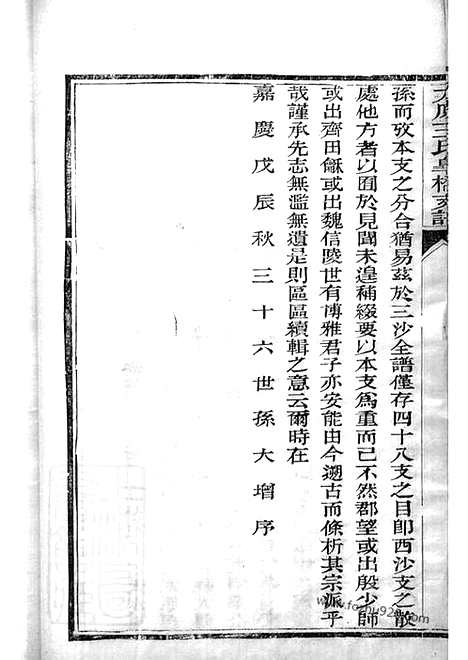 太原王氏皋橋支譜
孫而攷本支之分合猶易茲於三沙全譜僅存四十八支之目卽西沙支之散
處他方者以囿於見聞未遑補綴要以本支為重而已不然郡望或出殷少師
或出齊田龢或出魏信陵世有博雅君子亦安能由今遡古而條析其宗派乎
哉謹承先志無濫無遺是則區區續輯之意云爾時在
嘉慶戊辰秋三十六世孫大增序
www.fozhu920.com